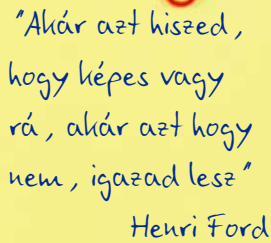 "Akár azt hiszed,
hogy képes vagy
rá, akár azt hogy
nem, igazad lesz"
Henri Ford